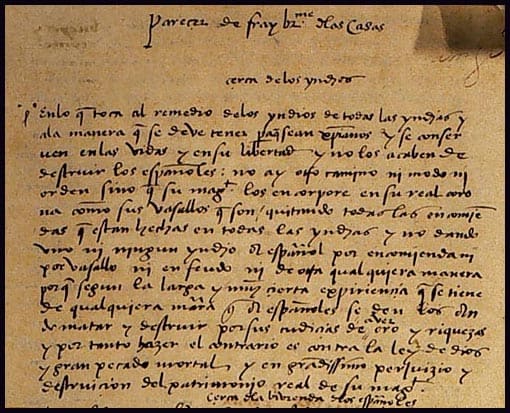 Parecer de fray br.me dlas Casas
cerca delos yndios
Enlo q̃ toca al remedio delos yndios de todas las yndias y
ala manera q̃ se deve tener paq̃ sean xpianos y se conser
ven enlas vidas y ensu libertad y no los acaben de
destruir los españoles: no ay otro camino ni modo ni
orden sino q̃ su mag.t los encorpore en su real coro
na como sus vasallos q̃ son, quitando todas las encomie
das q̃ estan hechas en todas las yndias y no dando
uno ni ningun yndio a español por encomienda ni
por vasallo ni en feudo ni de otra qualquiera manera
porq̃ segun la larga y muy cierta expiriencia q̃ se tiene
de qualquiera mãra q̃ a españoles se den los an
de matar y destruir por sus cudicias de aver oro y riquezas
y por tanto hazer el contrario es contra la ley de dios
y gran pecado mortal, y en grandissimo perjuizio y
destruicion del patrimonio real de su mag.t
cerca de la vivienda de los españoles